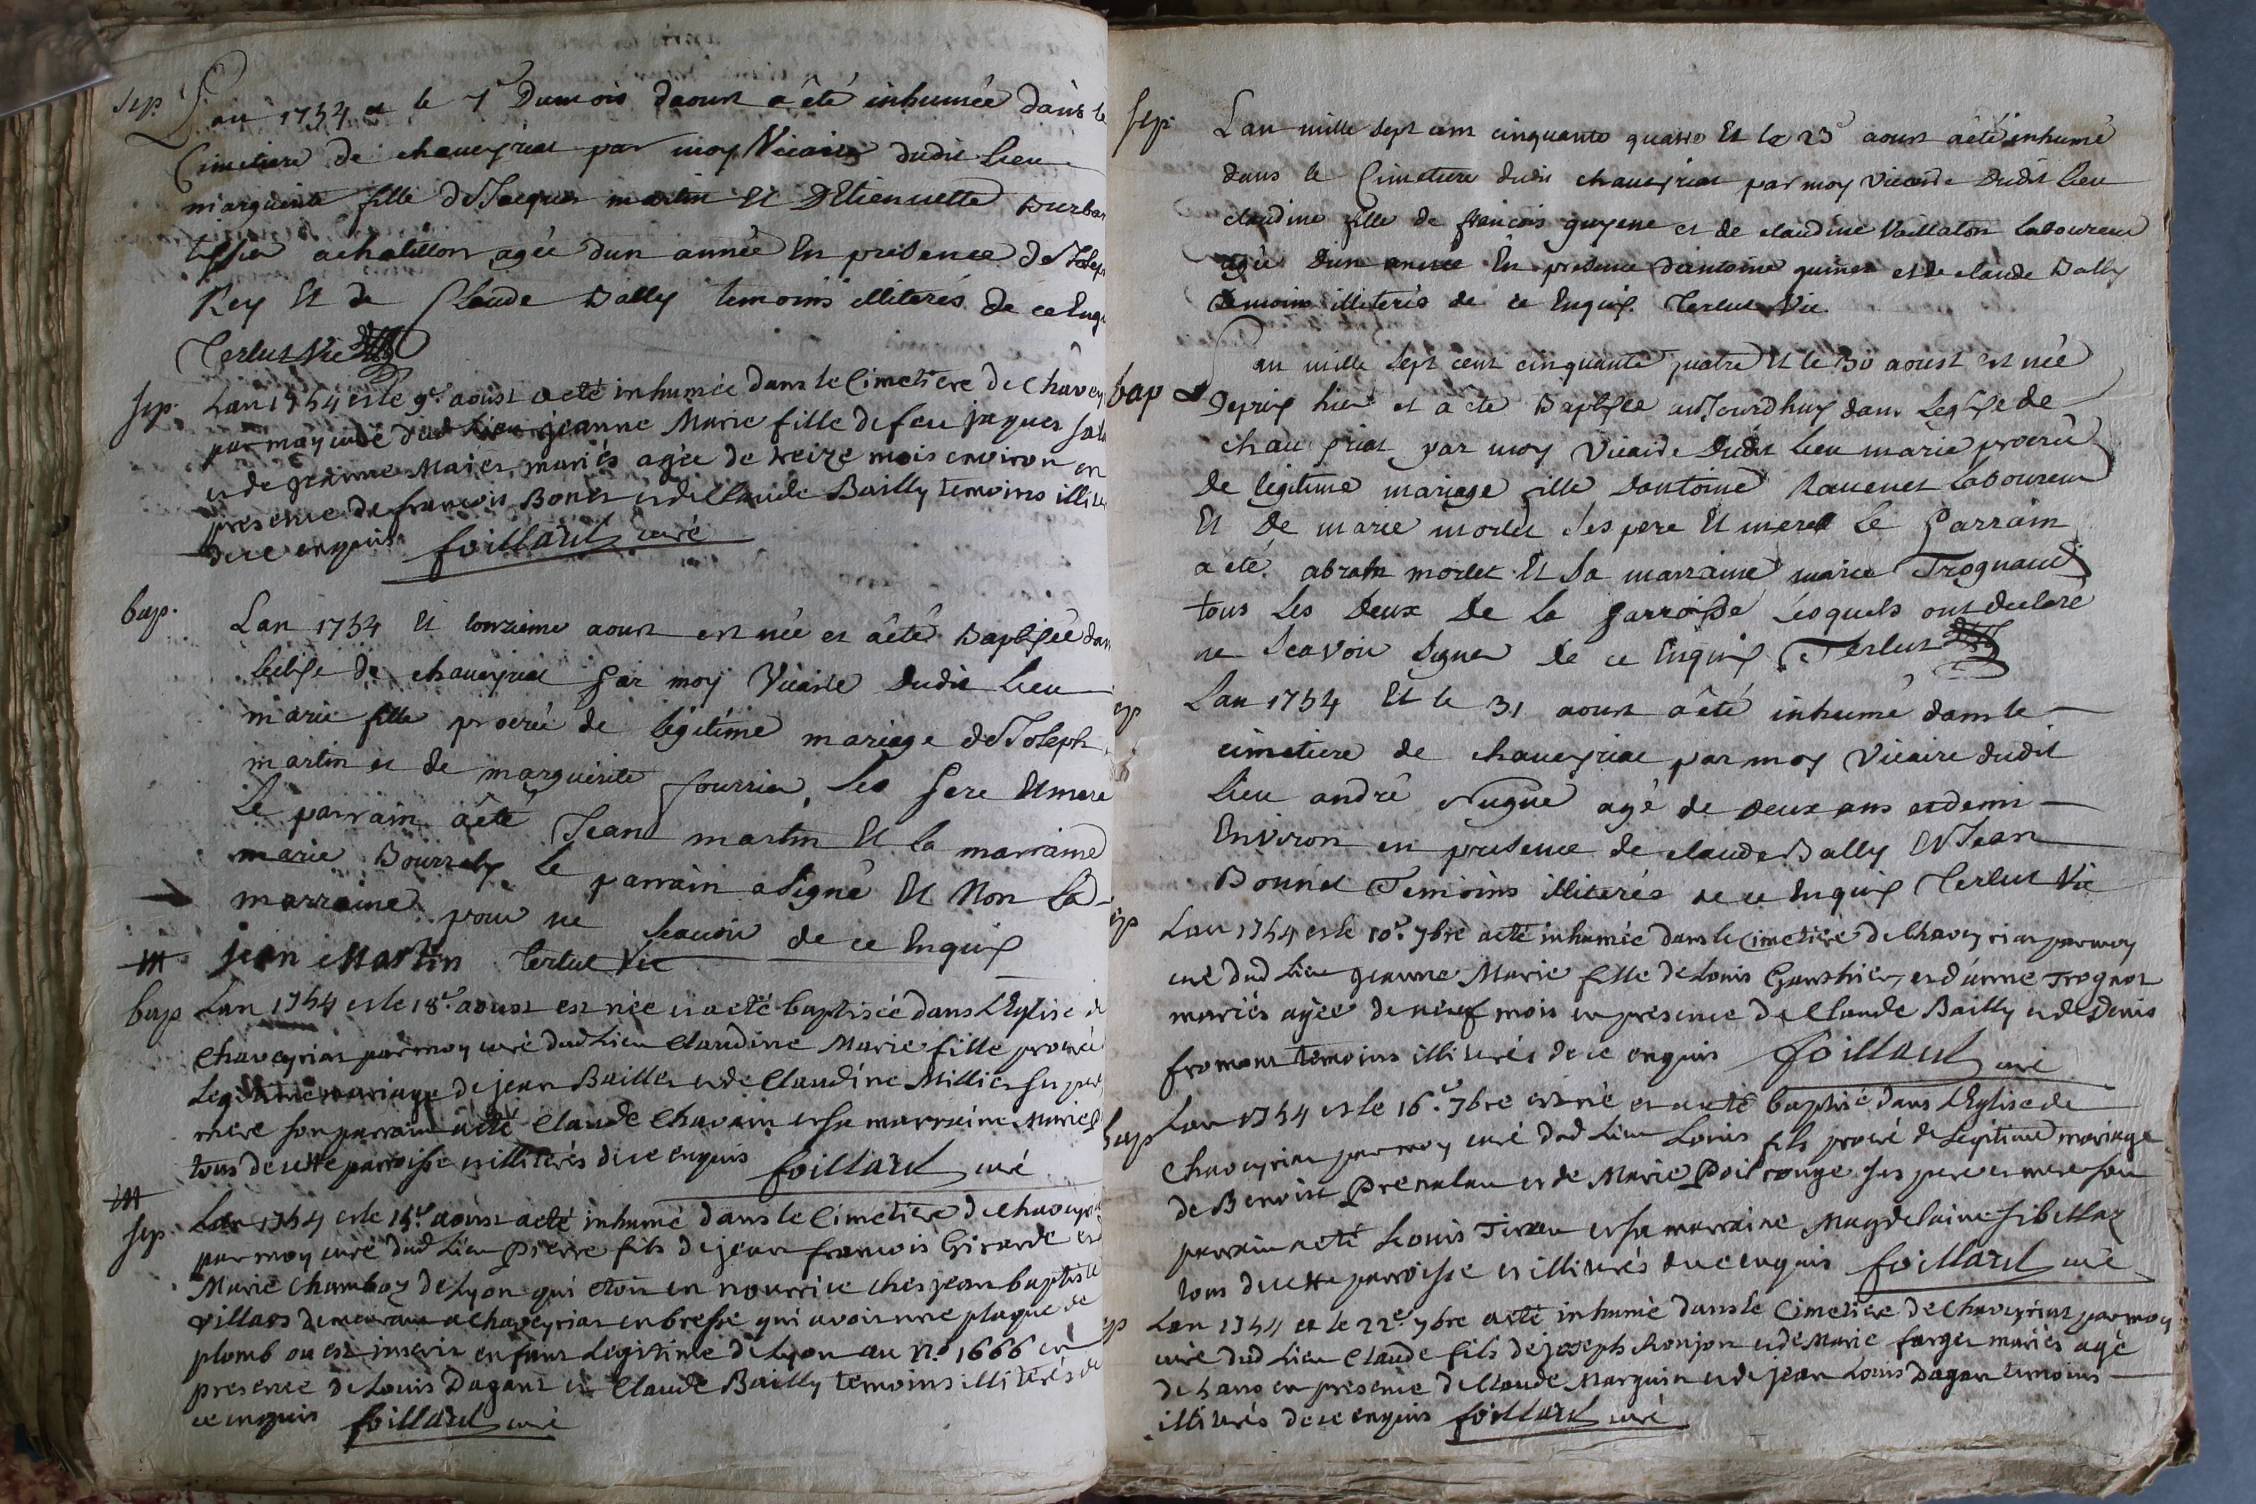 sep. Lan 1754 et le 7e Dumois daoust a été inhumée dans le
Cimetiere de chaveyriat par moy Vicaire dudit lieu
marguerite fille de Jacques martin Et DEtiennette
achatillon agée dun année En presence de Joseph
Rey Et de Claude Bally temoins illiterés de ce Enqu
Terlut Vic
sep. Lan 1754 et le 9e aoust acté inhumée dans le Cimetiere De Chavey
par moy curé dud Lieu jeanne Marie fille de feu jaques
et de jeanne mariés agée de treize mois environ en
presence de francois Bonet et de Claude Bailly temoins illite
de ce enquis foillard curé
bap. Lan 1754 Et lonzieme aoust est née et àété Baptisée dans
leglise de chaveyriat par moy Vicaire dudit lieu
marie fille procreé de légitime mariage de Joseph
martin et de marguerite fourrier, ses pere Et mere
Le parrain àété Jean martin Et la marraine
marie le parrain a Signé Et Non La
marraine pour ne scavoir de ce Enquis
jean Martin Terlut Vic
bap Lan 1754 et le 18e aoust est née et acté baptisée dans L'Eglise de
Chaveyriat par moy curé dud Lieu Claudine Marie fille procreé
Legitime mariage de jean Baillet et de Claudine Millier ses pere
mere son parrain acté Claude Chavain et sa marraine Marie
tous de cette parroisse et illiterés de ce enquis foillard curé
sep. Lan 1754 et le aoust acté inhumé dans le Cimetiere de Chaveyri
par moy curé dud Lieu Pierre fils de jean francois Girarde et
Marie Chamboz de Lyon qui etoit en nourrice Ches jean baptiste
villars demeurant a Chaveyriat en bresse qui avoit une plaque de
plomb ou est inscrit enfant Legitime de Lyon au no 1666 en
presence de Louis Dagant et Claude Bailly temoins illiterés de
ce enquis foillard curé
sep. Lan mille sept cent cinquante quatre Et le 23e aoust àété inhumé
dans le Cimetiere dudit chaveyriat par moy vicaire Dudit lieu
claudine fille de francois guyene et de claudine Vaillaton laboureur
agée D'un année En presence d'antoine et de claude Bally
temoins illiterés de ce Enquis. Terlut Vic.
bap Lan mille sept cent cinquante quatre Et le 30 aoust est née
Depuis hier et a été Baptisée auJourdhuy dans Leglise de
chaveyriat par moy Vicaire Dudit lieu marie procreé
de légitime mariage fille dantoine Ravenet Laboureur
Et De marie morlet ses pere Et mere Le Parrain
a été abram morlet Et Sa marraine marie Trognaud
tous Les Deux De La Parroisse Lesquels ont declaré
ne Scavoir Signer De ce Enquis Terlut
Lan 1754 Et le 31 aoust àété inhumé dans le
cimetiere de chaveyriat par moy Vicaire dudit
Lieu andré Nugue agé de Deux ans et demi
Environ en presence de claude Bally Et Jean
Bonnet Temoins illiterés de ce Enquis Terlut Vic
Lan 1754 et le 10e 7bre acté inhumée dans le Cimetiere de Chaveyriat par moy
curé dud Lieu jeanne Marie fille de Louis Gauthier et d'anne Trognot
mariés agée de neuf mois en presence de Claude Bailly et de Denis
fromont temoins illiterés de ce enquis foillard curé
bap Lan 1754 et le 16e 7bre est né et acté baptisé dans L'Eglise de
Chaveyriat par moy curé dud Lieu Louis fils procreé de Legitime mariage
de Benoist Prenalau et de Marie Poil rouge ses pere et mere son
parrain acté Louis Tirau et sa marraine Magdelaine Sibellaz
tous de cette parroisse et illiterés de ce enquis foillard curé
Lan 1754 et le 22e 7bre acté inhumé dans le Cimetiere de Chaveyriat par moy
curé dud Lieu Claude fils de joseph Ronjon et de Marie farges mariés agé
de ans en presence de Claude Marguin et de jean Louis Dagan temoins
illiterés de ce enquis foillard curé